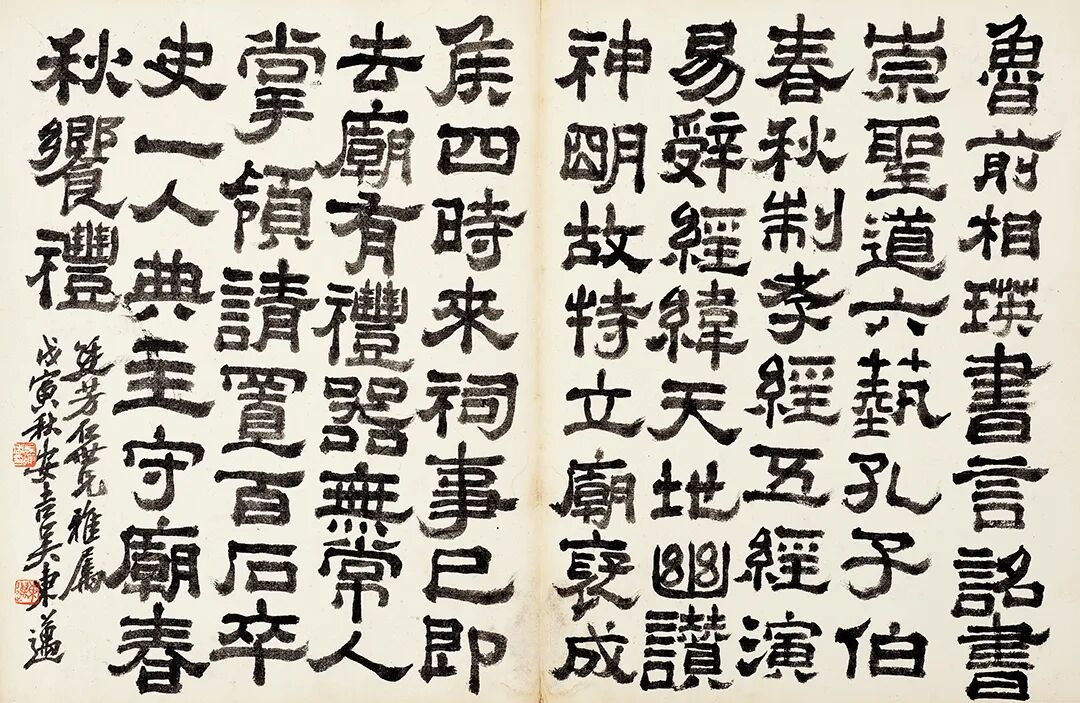 魯前相瑛書言詔書
崇聖道六藝孔子伯
春秋制孝經五經演
易辭經緯天地幽讚
神明故特立廟褒成
侯四時來祠事已即
去廟有禮器無常人
掌領請置百石卒
史一人典主守廟春
秋饗禮
芳仁世兄雅屬
戊寅秋安吉吳東邁